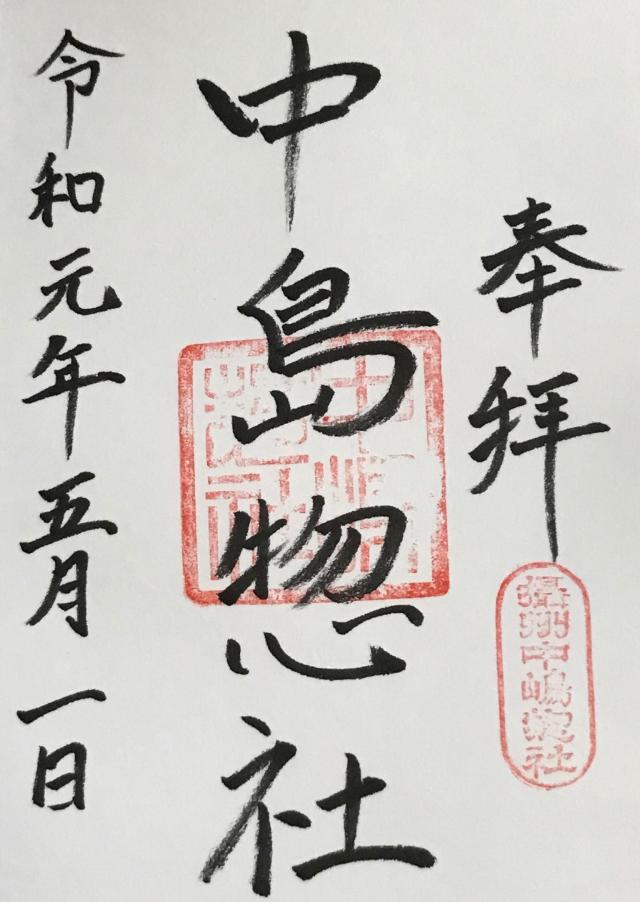 奉拝
摂州中嶋惣社
中島惣社
令和元年五月一日